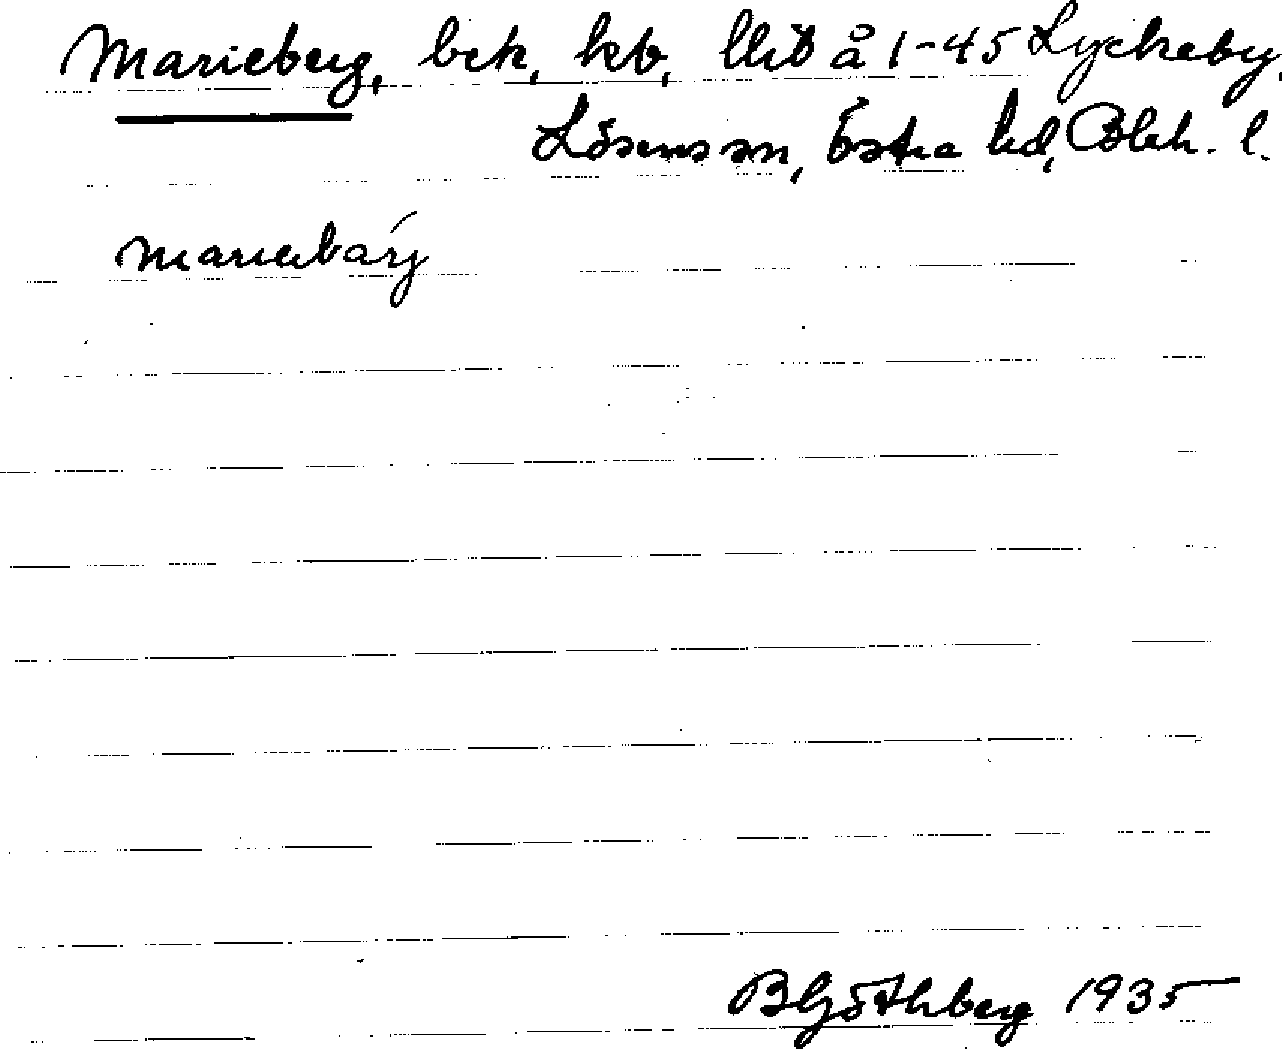 Marieberg, bek, kb, Utið å 1-45 Lyckeby,
Lösens sn, Östra hd, Blek. l.
marıebárg
B Göthberg 1935